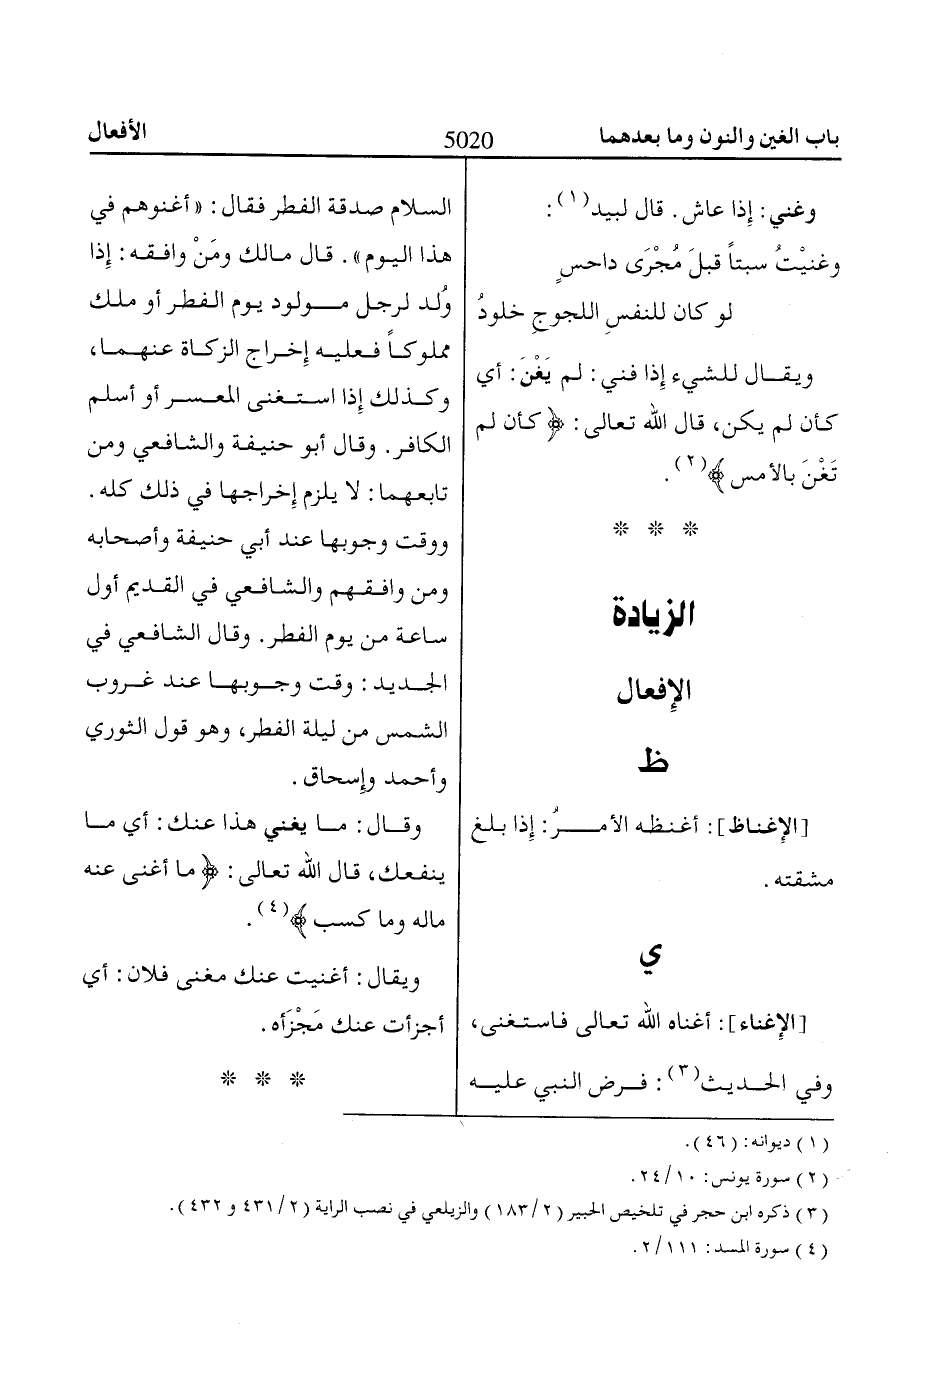 باب الغين والنون وما بعدهما
5020
الأفعال
وغني: إذا عاش. قال لبيد(١):
وغنيْتُ سبتاً قبلَ مُجْرَى داحسٍ
لو كان للنفسِ اللجوجِ خلودُ
ويقال للشيء إذا فني: لم يَغْنَ: أي
كأن لم يكن، قال الله تعالى: ﴿ كأن لم
تَغْنَ بالأمس ﴾(٢).
* * *
الزيادة
الإفعال
ظ
[الإغناظ]: أغنظه الأمرُ: إذا بلغ
مشقته.
ي
[الإغناء]: أغناه الله تعالى فاستغنى،
وفي الحديث(٣): فرض النبي عليه
السلام صدقة الفطر فقال: «أغنوهم في
هذا اليوم». قال مالك ومَنْ وافقه: إذا
وُلد لرجل مولود يوم الفطر أو ملك
مملوكاً فعليه إخراج الزكاة عنهما،
وكذلك إذا استغنى المعسر أو أسلم
الكافر. وقال أبو حنيفة والشافعي ومن
تابعهما: لا يلزم إخراجها في ذلك كله.
ووقت وجوبها عند أبي حنيفة وأصحابه
ومن وافقهم والشافعي في القديم أول
ساعة من يوم الفطر. وقال الشافعي في
الجديد: وقت وجوبها عند غروب
الشمس من ليلة الفطر، وهو قول الثوري
وأحمد وإسحاق.
وقال: ما يغني هذا عنك: أي ما
ينفعك، قال الله تعالى: ﴿ ما أغنى عنه
ماله وما كسب ﴾(٤).
ويقال: أغنيت عنك مغنى فلان: أي
أجزأت عنك مَجْزَأه.
* * *
(١) ديوانه: (٤٦).
(٢) سورة يونس: ٢٤/١٠.
(٣) ذكره ابن حجر في تلخيص الحبير (١٨٣/٢) والزيلعي في نصب الراية (٤٣١/٢ و ٤٣٢).
(٤) سورة المسد: ٢/١١١.